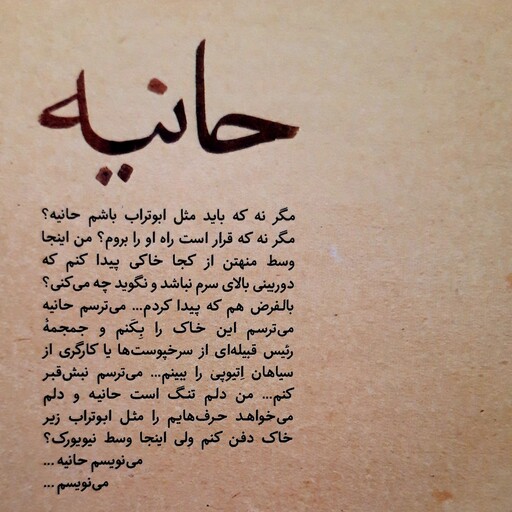 حانیه
مگر نه که باید مثل ابوتراب باشم حانیه؟
مگر نه که قرار است راه او را بروم؟ من اینجا
وسط منهتن از کجا خاکی پیدا کنم که
دوربینی بالای سرم نباشد و نگوید چه می‌کنی؟
بالفرض هم که پیدا کردم... می‌ترسم حانیه
می‌ترسم این خاک را بِکَنم و جمجمهٔ
رئیس قبیله‌ای از سرخپوست‌ها یا کارگری از
سیاهان اِتیوپی را ببینم... می‌ترسم نبش‌قبر
کنم... من دلم تنگ است حانیه و دلم
می‌خواهد حرف‌هایم را مثل ابوتراب زیر
خاک دفن کنم ولی اینجا وسط نیویورک؟
می‌نویسم حانیه ...
می‌نویسم ...